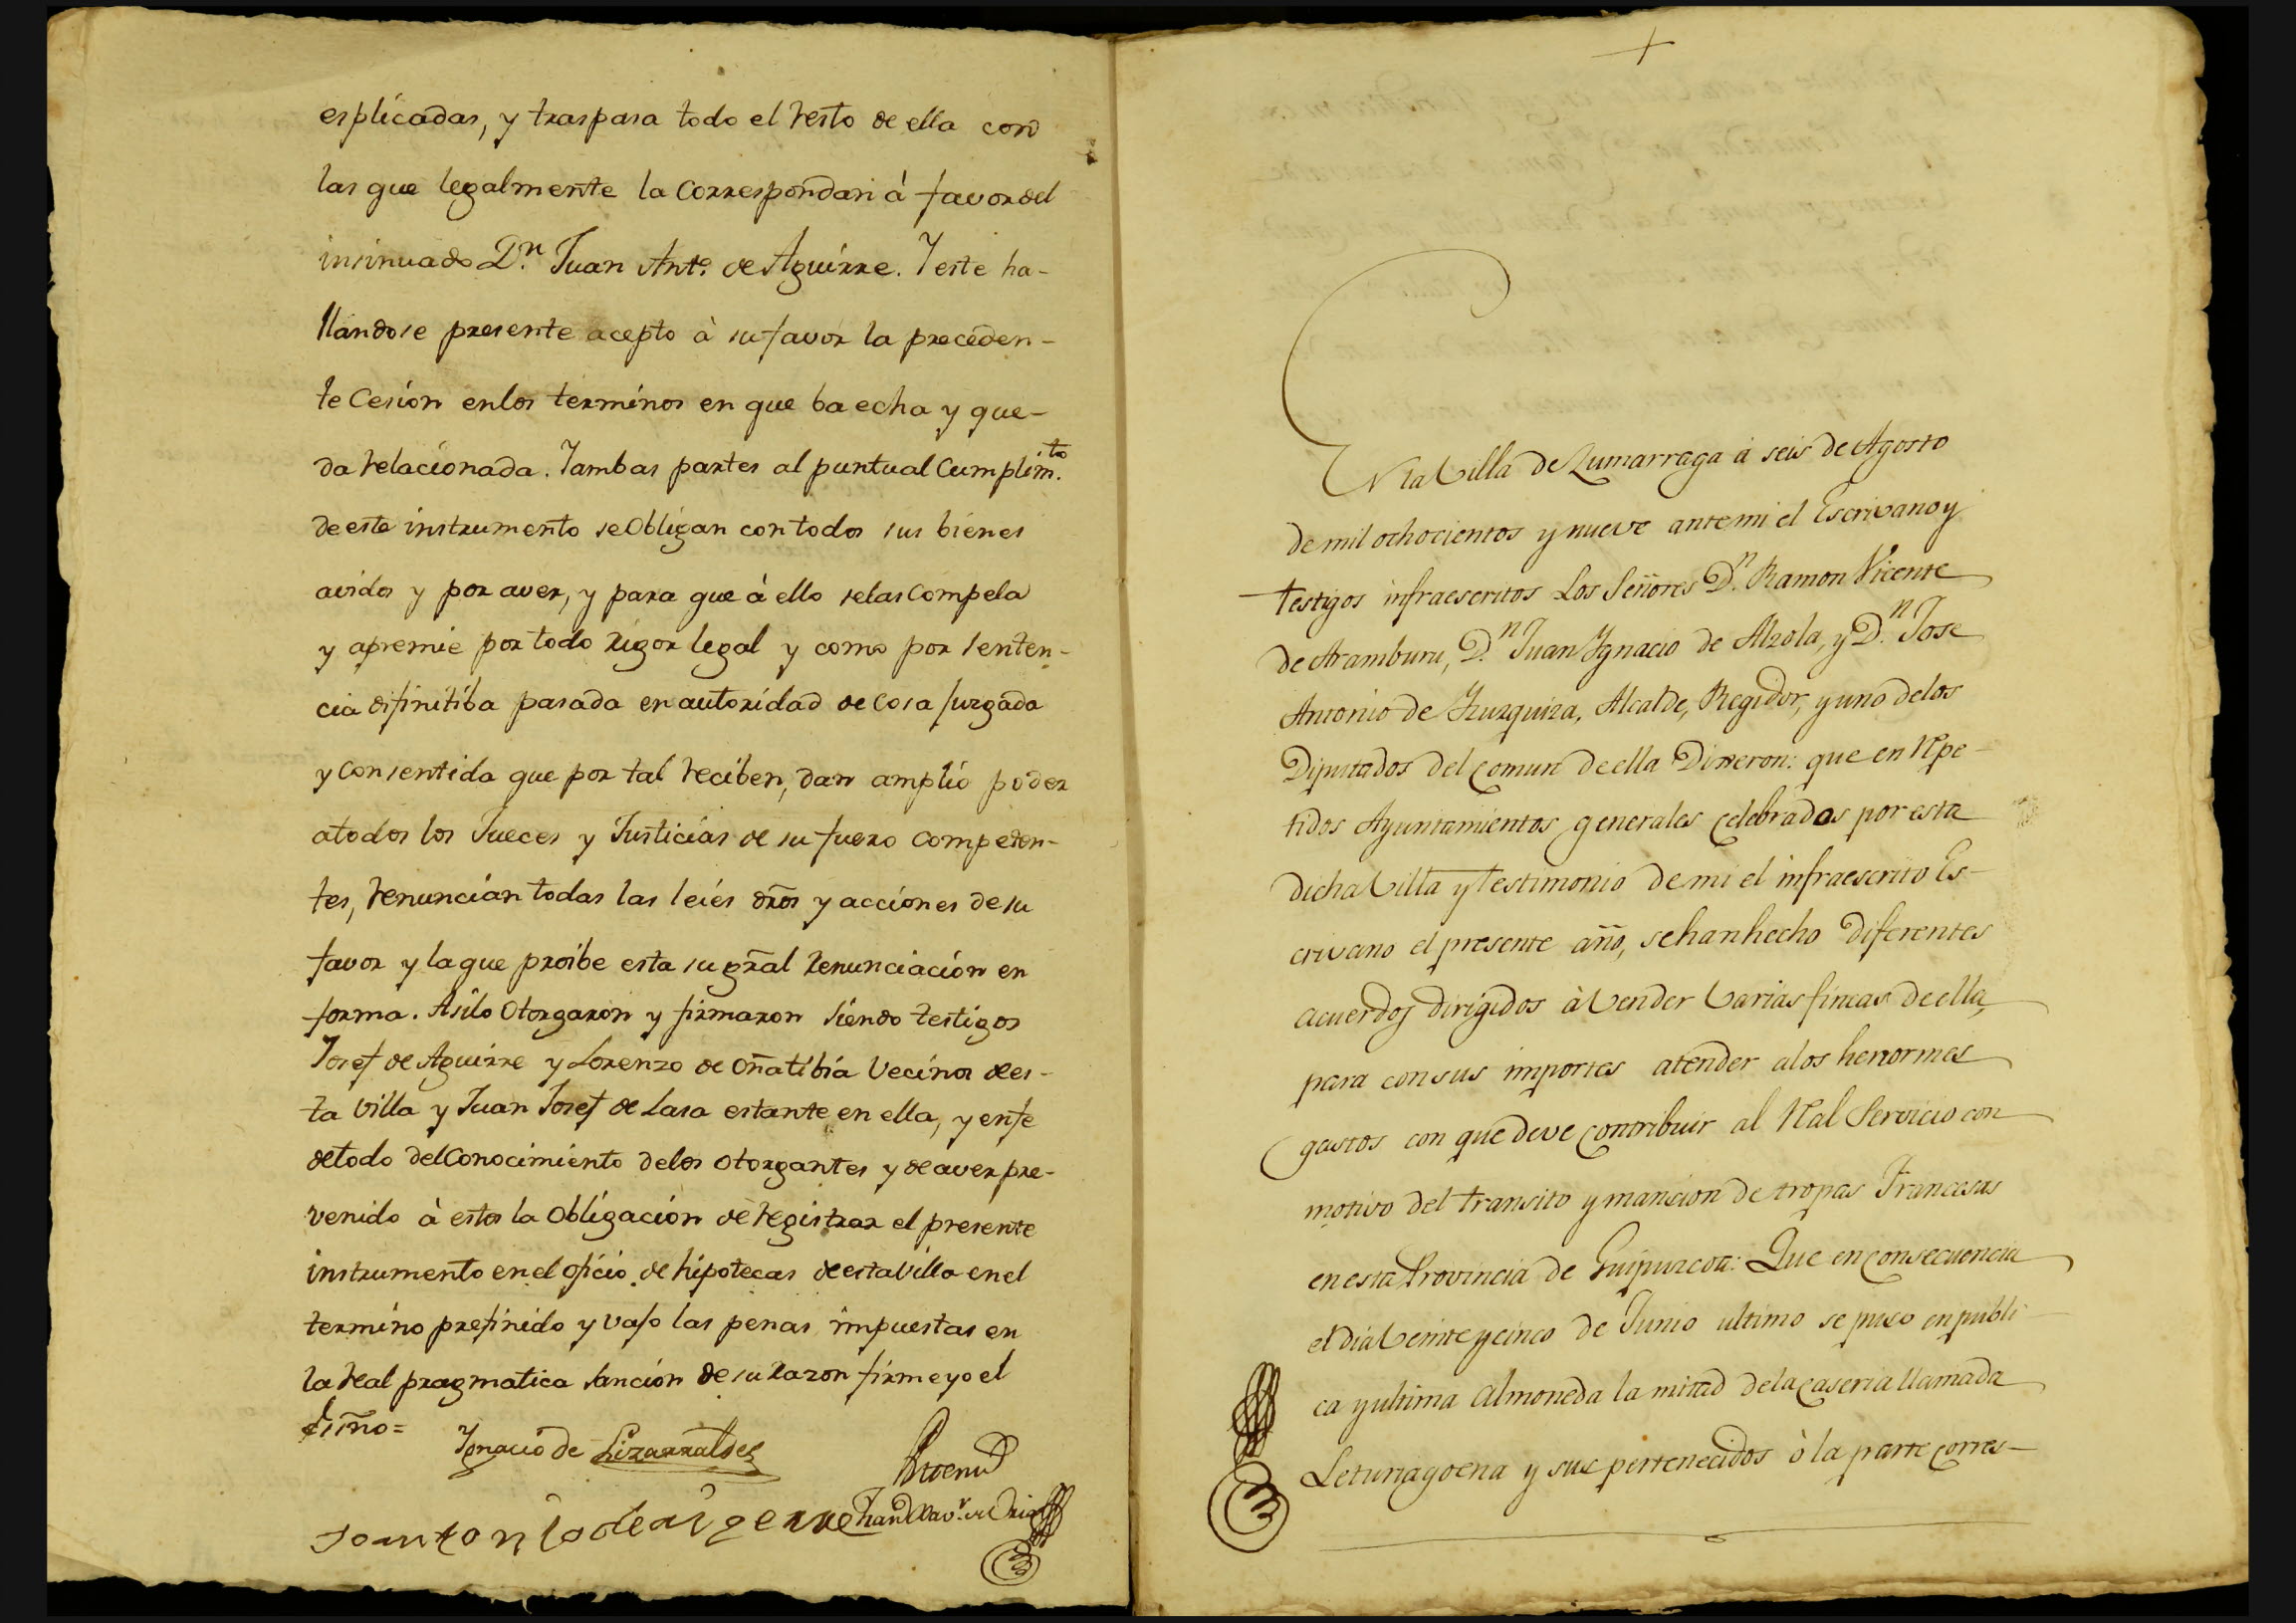 esplicadas, y traspasa todo el resto de ella con
las que legalmente la Correspondan à favor del
insinuado D.n Juan Ant.o de Aguirre. Y este ha-
llandose presente acepto à su favor la preceden-
te Cesion en los terminos en que ba echa y que-
da relacionada. Y ambas partes al puntual Cumplim.to
de este instrumento se obligan con todos sus bienes
avidos y por aver, y para que à ello se las Compela
y apremie por todo rigor legal y como por senten-
cia difinitiba pasada en autoridad de Cosa juzgada
y Consentida que por tal reciben, dan amplio poder
a todos los Jueces y Justicias de su fuero Competen-
tes, renuncian todas las leies dr̃os y acciones de su
favor y la que proibe esta su gr̃al renunciacion en
forma. Asi lo Otorgaron y firmaron siendo testigos
Josef de Aguirre y Lorenzo de Oñatibia Vecinos de es-
ta Villa y Juan Josef de Lasa estante en ella, y en fe
de todo del Conocimiento de los otorgantes y de aver pre-
venido à estos la Obligacion de registrar el presente
instrumento en el oficio de hipotecas de esta Villa en el
termino prefinido y vajo las penas impuestas en
la Real pragmatica Sancion de su razon firme yo el
Ess̃no=
Ygnacio de Lizarralde
Juantonio de Aigerre
Antemi
+
EN la Villa de Zumarraga á seis de Agosto
de mil ochocientos y nueve ante mi el Escrivano y
testigos infraescritos Los Señores D.n Ramon Vicente
de Aramburu, D.n Juan Ygnacio de Alzola, y D.n Jose
Antonio de Yzuzquiza, Alcalde, Regidor, y uno de los
Diputados del Comun de ella Dixeron: que en repe-
tidos Ayuntamientos generales Celebrados por esta
dicha Villa y testimonio de mi el infraescrito Es-
crivano el presente año, se han hecho diferentes
acuerdos dirigidos à Vender Varias fincas de ella,
para con sus importes atender a los henormes
gastos con que deve Contribuir al Real Servicio con
motivo del transito y mansion de tropas Francesas
en esta Provincia de Guipuzcoa: Que en Consecuencia
el dia Veinte y cinco de Junio ultimo se puso en publi-
ca y ultima Almoneda la mitad de la Caseria llamada
Leturiagoena y sus pertenecidos ò la parte corres-